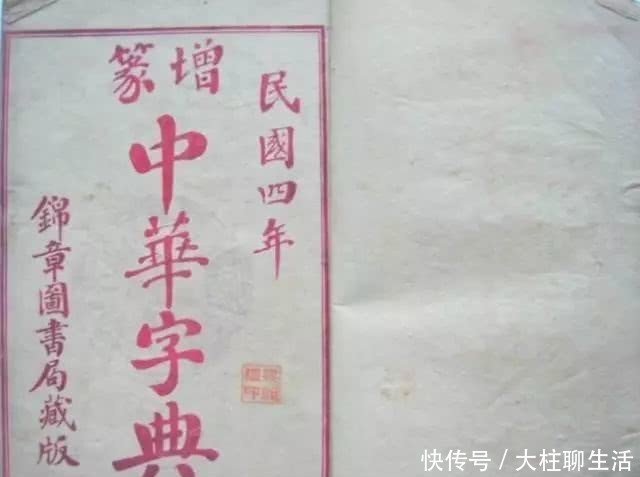 民國四年
增篆
中華字典
錦章圖書局藏版
快传号／大柱聊生活